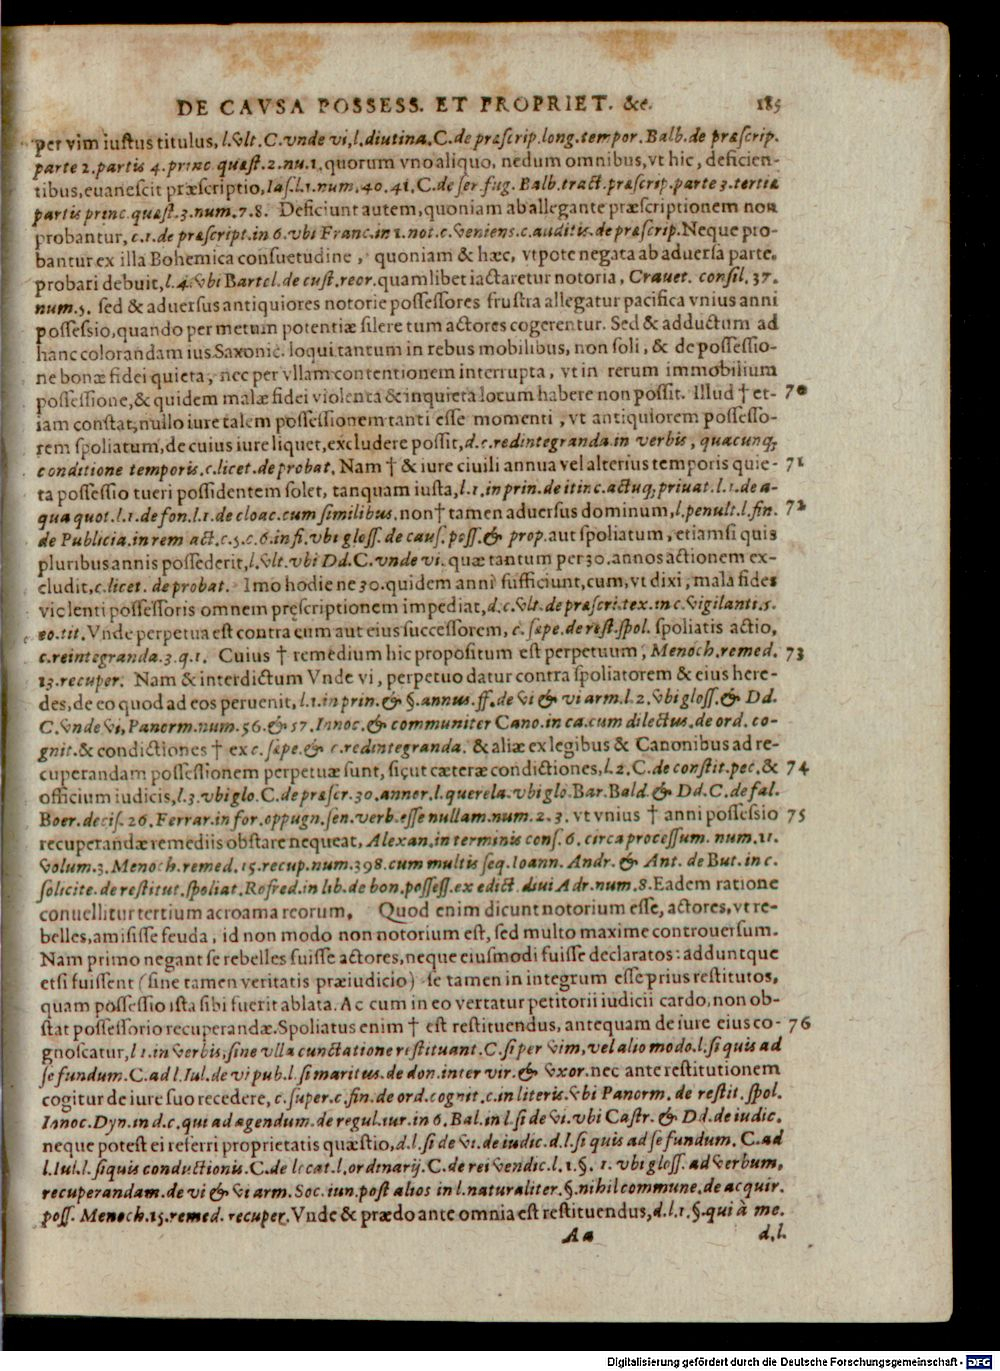 DE CAVSA POSSESS. ET PROPRIET. &c. 185
per vim iustus titulus, l. vlt. C. vnde vi, l. diutina. C. de præscrip. long. tempor. Balb. de præscrip.
parte 2. partis 4. princ. quæst. 2. nu. 1. quorum vno aliquo, nedum omnibus, vt hic, deficien-
tibus, euanescit præscriptio, Ias. l. 1. num. 40. 41. C. de ser. fug. Balb. tract. præscrip. parte 3. tertiæ
partis princ. quæst. 3. num. 7. 8. Deficiunt autem, quoniam ab allegante præscriptionem non
probantur, c. 1. de præscript. in 6. vbi Franc. in 1. not. c. veniens. c. auditis. de præscrip. Neque pro-
bantur ex illa Bohemica consuetudine, quoniam & hæc, vtpote negata ab aduersa parte,
probari debuit, l. 4. vbi Bartol. de cust. reor. quamlibet iactaretur notoria, Crauet. consil. 37.
num. 5. sed & aduersus antiquiores notorie possessores frustra allegatur pacifica vnius anni
possessio, quando per metum potentiæ silere tum actores cogerentur. Sed & adductum ad
hanc colorandam ius Saxonic. loqui tantum in rebus mobilibus, non soli, & de possessio-
ne bonæ fidei quieta, nec per vllam contentionem interrupta, vt in rerum immobilium
possessione, & quidem malæ fidei violenta & inquieta locum habere non possit. Illud † et- 70
iam constat, nullo iure talem possessionem tanti esse momenti, vt antiquiorem possesso-
rem spoliatum, de cuius iure liquet, excludere possit, d. c. redintegranda. in verbis, quacunq;
conditione temporis. c. licet. de probat. Nam † & iure ciuili annua vel alterius temporis quie- 71
ta possessio tueri possidentem solet, tanquam iusta, l. 1. in prin. de itin. c. actuq; priuat. l. 1. de a-
qua quot. l. 1. de fon. l. 1. de cloac. cum similibus. non † tamen aduersus dominum, l. penult. l. fin. 72
de Publicia. in rem act. c. 5. c. 6. infi. vbi gloss. de caus. poss. & prop. aut spoliatum, etiamsi quis
pluribus annis possederit, l. vlt. vbi Dd. C. vnde vi. quæ tantum per 30. annos actionem ex-
cludit, c. licet. de probat. Imo hodie ne 30. quidem anni sufficiunt, cum, vt dixi, mala fides
violenti possessoris omnem prescriptionem impediat, d. c. vlt. de præscri. tex. in c. vigilanti. 5.
eo. tit. Vnde perpetua est contra eum aut eius successorem, c. sæpe. de rest. spol. spoliatis actio,
c. reintegranda. 3. q. 1. Cuius † remedium hic propositum est perpetuum, Menoch. remed. 73
13. recuper. Nam & interdictum Vnde vi, perpetuo datur contra spoliatorem & eius here-
des, de eo quod ad eos peruenit, l. 1. in prin. & §. annus. ff. de vi & vi arm. l. 2. vbi gloss. & Dd.
C. vnde vi, Panorm. num. 56. & 57. Innoc. & communiter Cano. in ca. cum dilectus. de ord. co-
gnit. & condictiones † ex c. sæpe. & c. redintegranda. & aliæ ex legibus & Canonibus ad re-
cuperandam possessionem perpetuæ sunt, sicut cæteræ condictiones, l. 2. C. de constit. pec. & 74
officium iudicis, l. 3. vbi glo. C. de præscr. 30. annor. l. querela. vbi glo. Bar. Bald. & Dd. C. de fal.
Boer. decis. 26. Ferrar. in for. oppugn. sen. verb. esse nullam. num. 2. 3. vt vnius † anni possessio 75
recuperandæ remediis obstare nequeat, Alexan. in terminis cons. 6. circa processum. num. 11.
volum. 3. Menoch. remed. 15. recup. num. 398. cum multis seq. Ioann. Andr. & Ant. de But. in c.
solicite. de restitut. spoliat. Rofred. in lib. de bon. possess. ex edict. diui Adr. num. 8. Eadem ratione
conuellitur tertium acroama reorum. Quod enim dicunt notorium esse, actores, vt re-
belles, amisisse feuda, id non modo non notorium est, sed multo maxime controuersum.
Nam primo negant se rebelles fuisse actores, neque eiusmodi fuisse declaratos: adduntque
etsi fuissent (sine tamen veritatis præiudicio) se tamen in integrum esse prius restitutos,
quam possessio ista sibi fuerit ablata. Ac cum in eo vertatur petitorii iudicii cardo, non ob-
stat possessorio recuperandæ. Spoliatus enim † est restituendus, antequam de iure eius co- 76
gnoscatur, l. 1. in verbis, sine vlla cunctatione restituant. C. si per vim, vel alio modo. l. si quis ad
se fundum. C. ad l. Iul. de vi pub. l. si maritus. de don. inter vir. & vxor. nec ante restitutionem
cogitur de iure suo recedere, c. super. c. fin. de ord. cognit. c. in literis. vbi Panorm. de restit. spol.
Innoc. Dyn. in d. c. qui ad agendum. de regul. iur. in 6. Bal. in l. si de vi. vbi Castr. & Dd. de iudic.
neque potest ei referri proprietatis quæstio, d. l. si de vi. de iudic. d. l. si quis ad se fundum. C. ad
l. Iul. l. si quis conductionis. C. de locat. l. ordinarij. C. de rei vendic. l. 1. §. 1. vbi gloss. ad verbum,
recuperandam. de vi & vi arm. Soc. iun. post alios in l. naturaliter. §. nihil commune. de acquir.
poss. Menoch. 15. remed. recuper. Vnde & prædo ante omnia est restituendus, d. l. 1. §. qui à me.
Aa d. l.
Digitalisierung gefördert durch die Deutsche Forschungsgemeinschaft - DFG